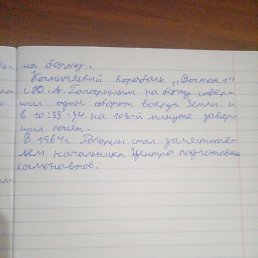 на борту.
Космический корабль „Восток 1"
с Ю. А. Гагариным на борту совер-
шил один оборот вокруг Земли и
в 10:55:34 на 108-й минуте завер
шил полёт.
В 1964 г Гагарин стал заместите-
лем начальника Центра подготовки
космонавтов.